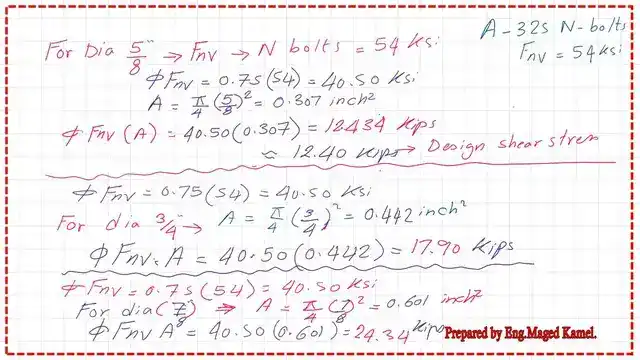 A-325 N-bolts
Fnv = 54 ksi
For Dia 5/8" → Fnv → N bolts = 54 Ksi
ϕFnv = 0.75(54) = 40.50 Ksi
A = π/4 (5/8)² = 0.307 inch²
ϕFnv(A) = 40.50(0.307) = 12.434 Kips
≈ 12.40 Kips → Design shear stress
ϕFnv = 0.75(54) = 40.50 Ksi
For dia 3/4" → A = π/4 (3/4)² = 0.442 inch²
ϕFnv.A = 40.50(0.442) = 17.90 Kips
ϕFnv = 0.75(54) = 40.50 Ksi
For dia(7/8") ⇒ A = π/4 (7/8)² = 0.601 inch²
ϕFnv A = 40.50(0.601) = 24.34 Kips
Prepared by Eng.Maged Kamel.